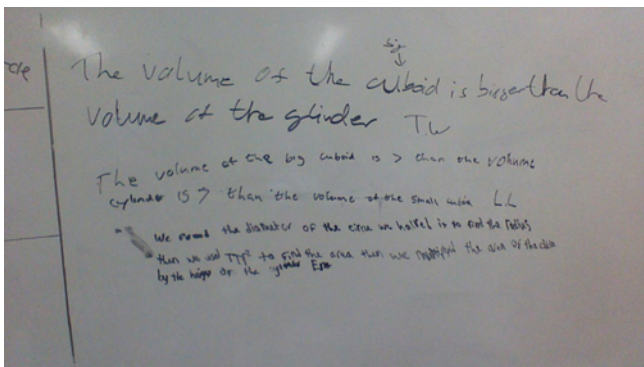 cle
big
The volume of the cuboid is bigger than the
volume of the cylinder T.W
The volume of the big cuboid is > than the volume
cylinder is > than the volume of the small cuboid L.L
We the diameter of the circle we halfed it to find the radius
then we used πr² to find the area then we the area of the
by the of the